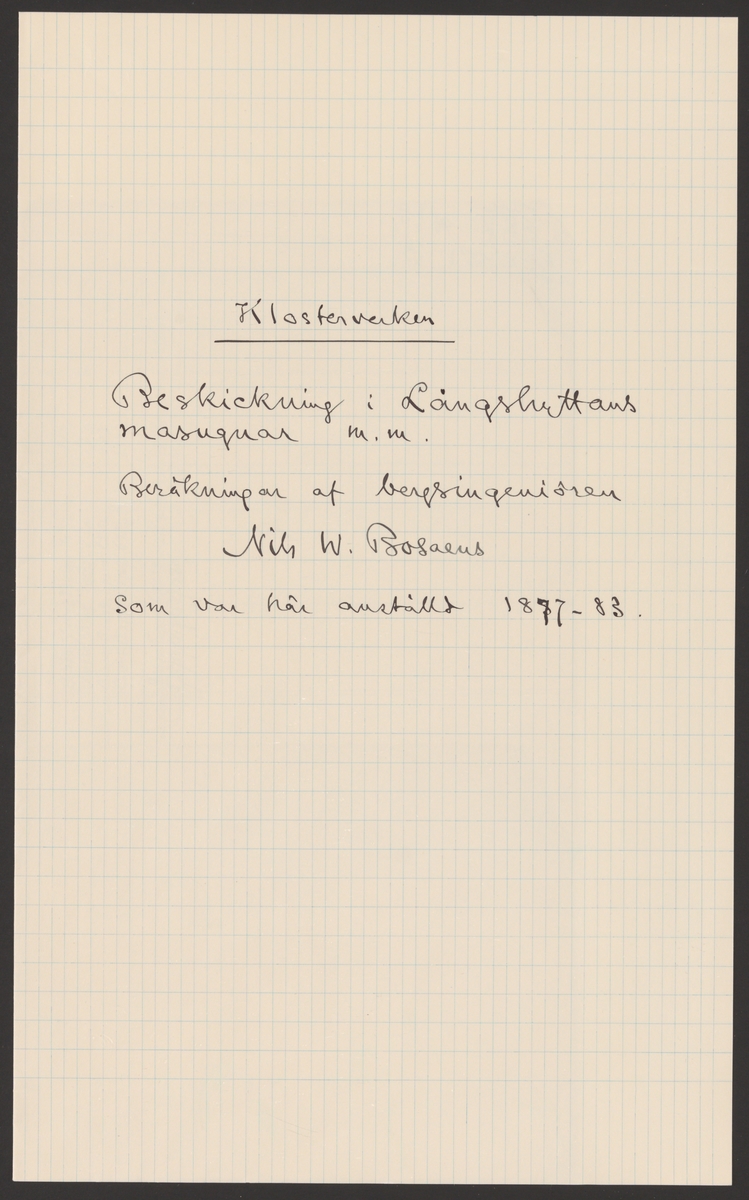 Klosterverken
Beskickning i Långshyttans
masugnar m.m.
Beräkningar af bergsingeniören
Nils W. Bosaeus
som var här anställd 1877-83.